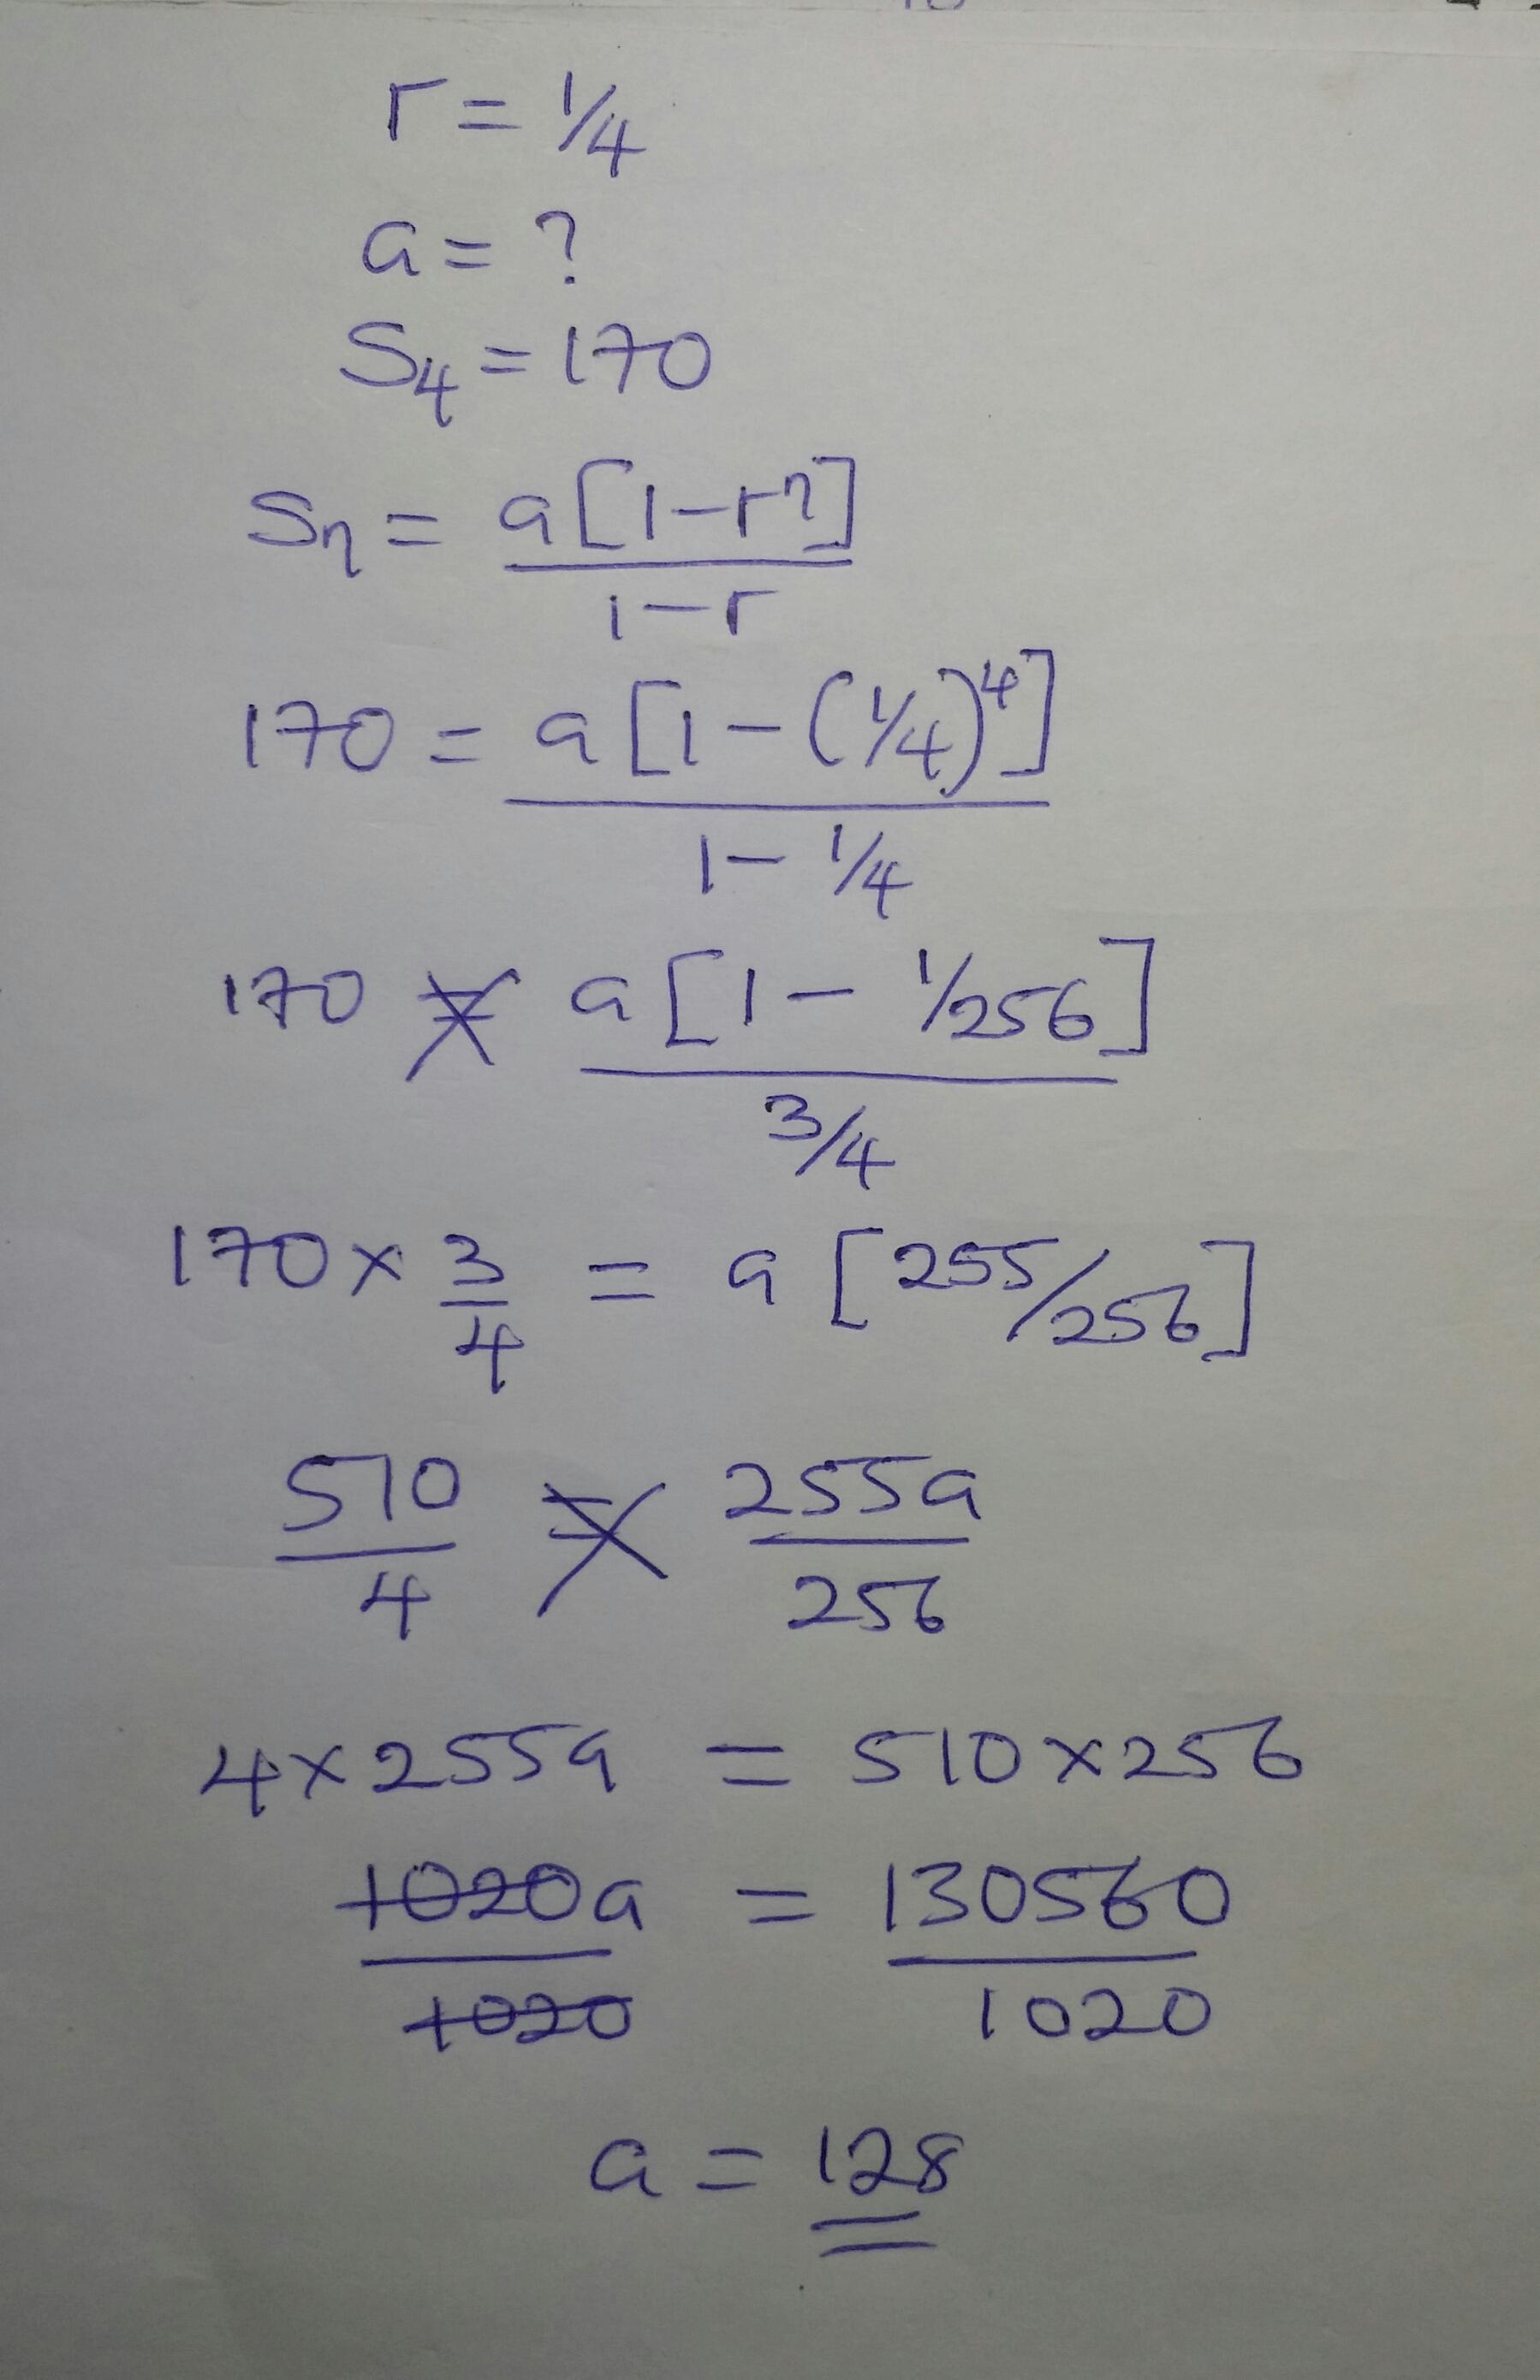 r = 1/4
a = ?
S₄ = 170
Sn = a[1-rⁿ]
1-r
170 = a[1-(1/4)⁴]
1-1/4
170 = a[1-1/256]
3/4
170 × 3/4 = a[255/256]
510 = 255a
4 256
4×255a = 510×256
1020a = 130560
1020 1020
a = 128